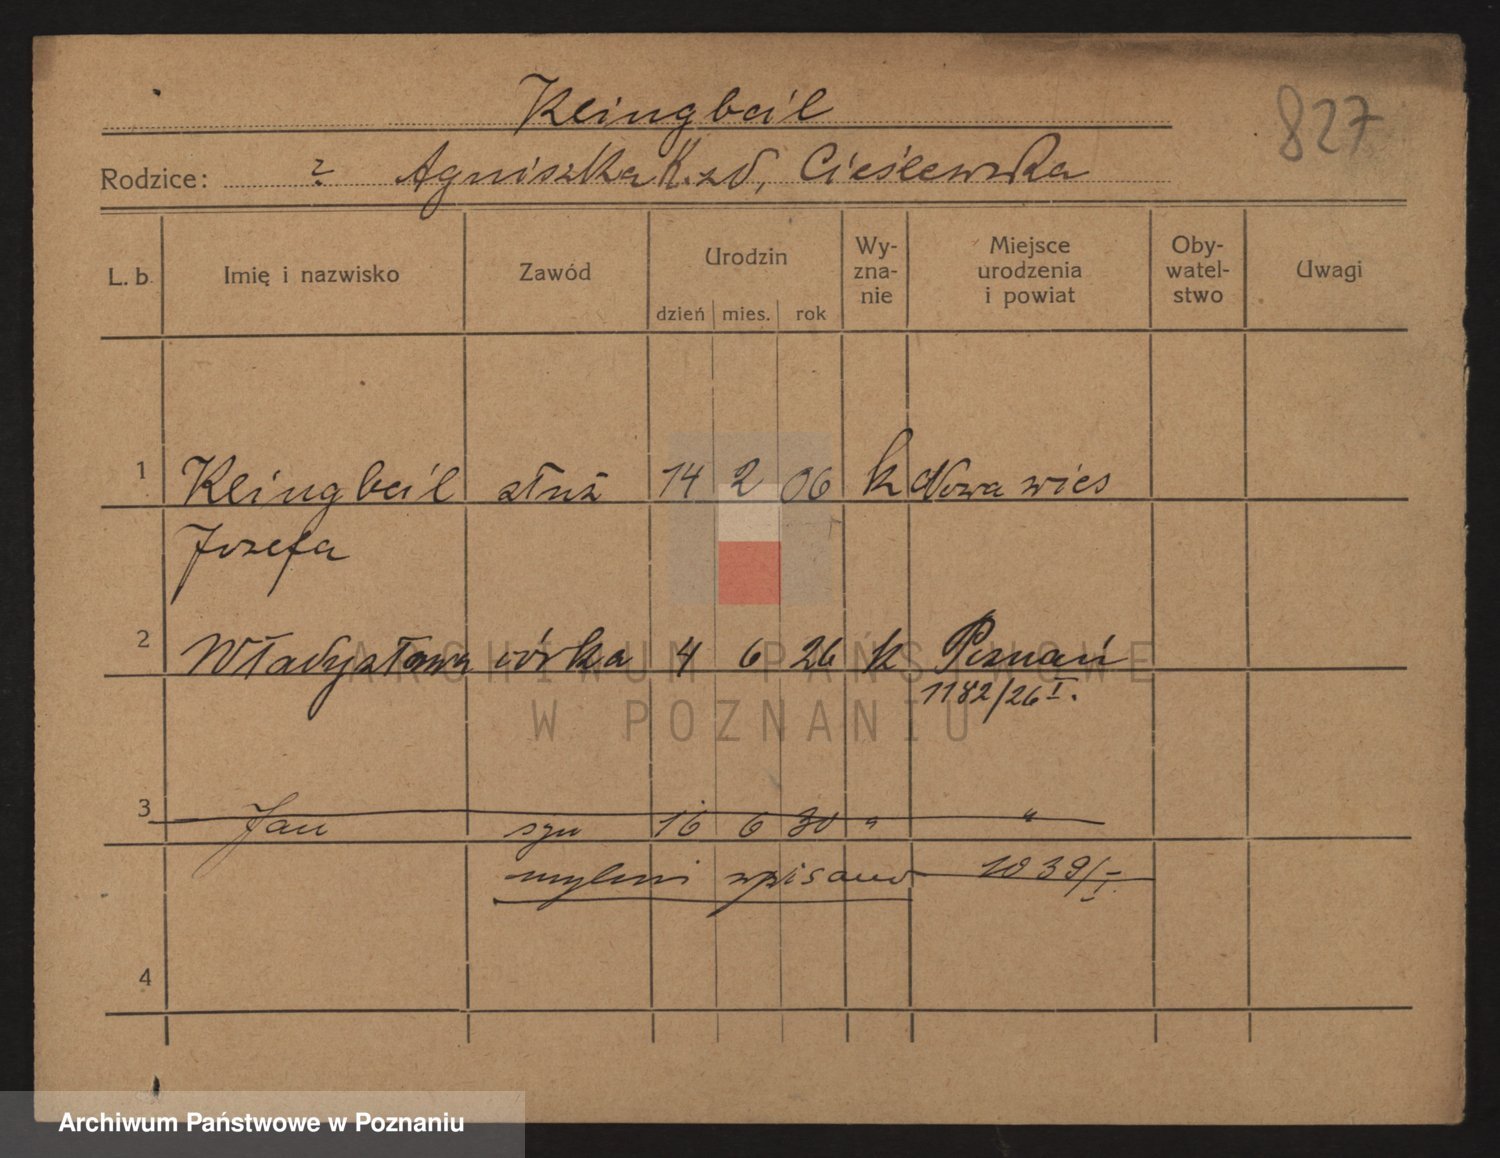 Klingbeil
827
Rodzice: ? Agniszka K. zd, Cieślewska
L. b. Imię i nazwisko Zawód Urodzin dzień mies. rok Wy-zna-nie Miejsce urodzenia i powiat Oby-watel-stwo Uwagi
1 Klingbeil służ 14 2 06 k Nowa wies
Jozefa
2 Władysława córka 4 6 26 k Poznań
1182/26 I.
3 Jan syn 16 6 30 " "
mylni wpisano 1039/I.
4
ARCHIWUM PAŃSTWOWE
W POZNANIU
Archiwum Państwowe w Poznaniu